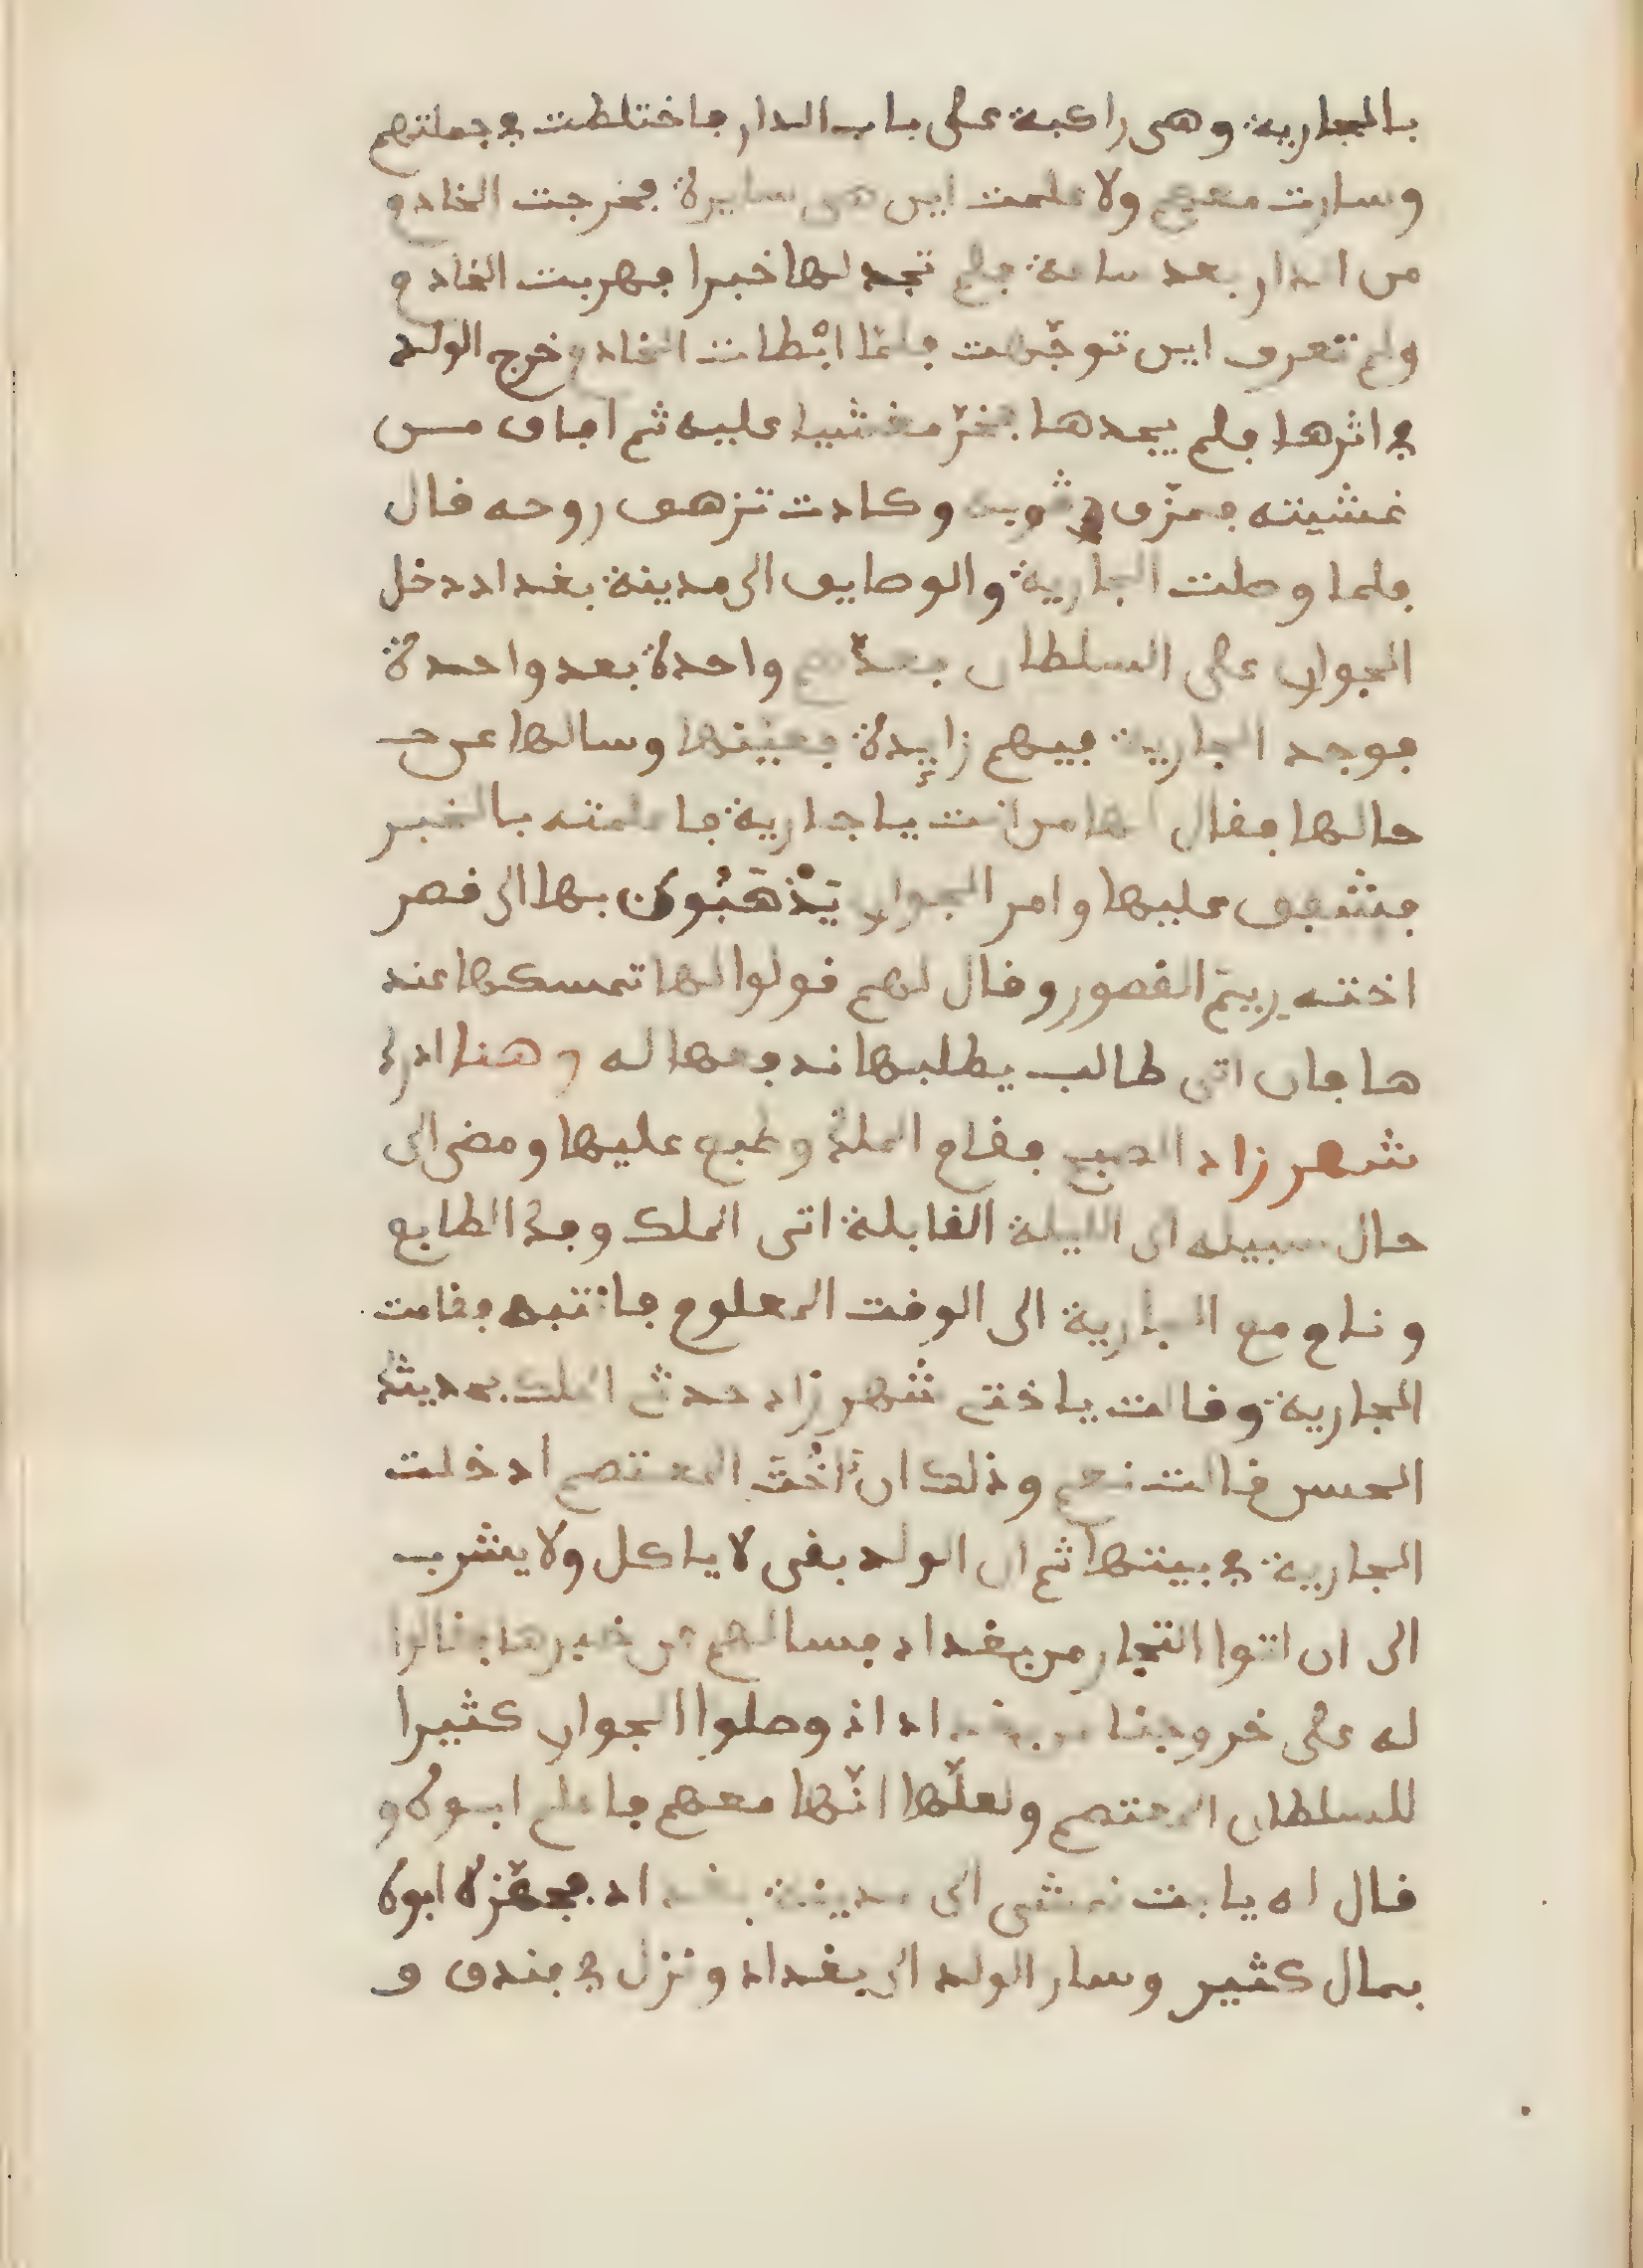 بالجارية وهى راكبة على باب الدار فاختلطت في جملتهم
وسارت معهم ولا علمت اين هى سايرة فخرجت الخادم
من الدار بعد ساعة فلم تجد لها خبرا فهربت الخادم
ولم تعرف اين توجّهت فلمّا ابْطات الخادم خرج الولد
في اثرها فلم يجدها فخرّ مغشيا عليه ثم افاق مــن
غشيته فمزّق ثوبه وكادت تزهق روحه قال
فلما وصلت الجارية والوصايف الى مدينة بغداد دخل
الجوار على السلطان فعدّهم واحدة بعد واحدة
فوجد الجارية فيهم زايدة فعيّنها وسالها عن حـ
حالها فقال لها من انت يا جارية فاعلمته بالخبر
فشفق عليها وامر الجوار يَذْهَبُون بها الى قصر
اخته ريم القصور وقال لهم قولوا لها تمسكها عند
ها فان اتى طالب يطلبها ندفعها له وهنا ادرك
شهرزاد الصبح فقام الملك وطبع عليها ومضى الى
حال سبيله الى الليلة القابلة اتى الملك وفك الطابع
ونام مع الجارية الى الوقت المعلوم فانتبه فقامت
الجارية وقالت ياختى شهرزاد حدث الملك بحديثك
الحسن قالت نعم وذلك ان أُخْتَ المعتصم ادخلت
الجارية في بيتها ثم ان الولد بقى لا ياكل ولا يشرب
الى ان اتوا التجار من بغداد فسالهم عن خبرها فقالوا
له على خروجنا من بغداد اذ وصلوا الجوار كثيرا
للسلطان المعتصم ولعلّها انّها معهم فاعلم ابوه و
قال له يابت نمشى الى مدينة بغداد فجهّزه ابوه
بمال كثير وسار الولد الى بغداد ونزل في فندق و